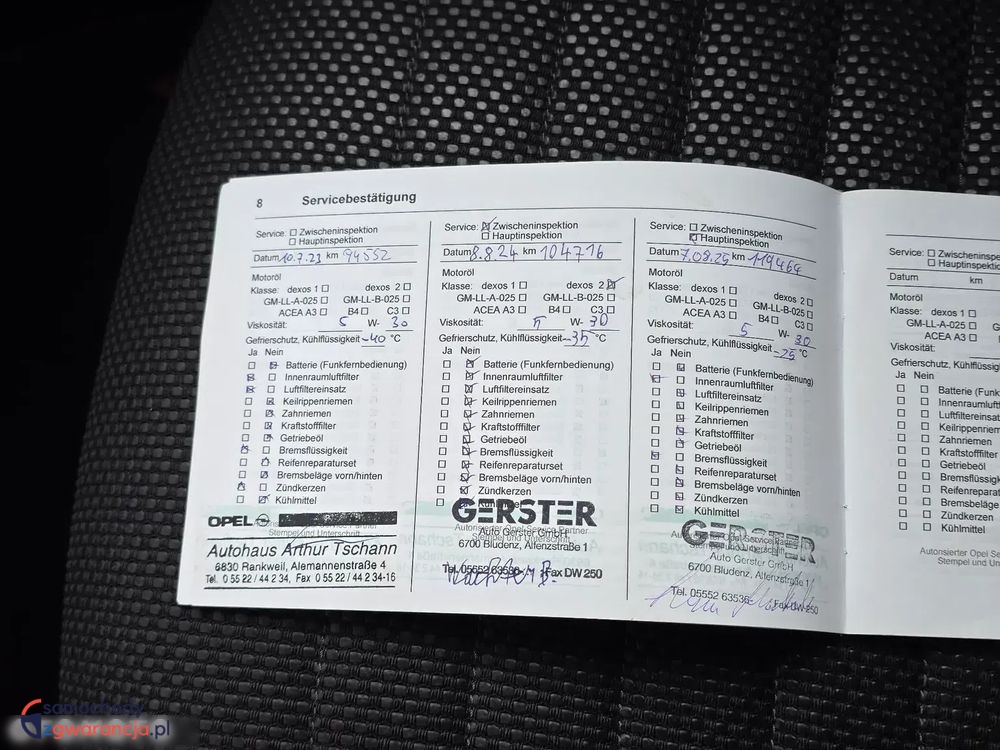 8 Servicebestätigung
Service: Zwischeninspektion
Hauptinspektion
Datum 10.7.23 km 94552
Motoröl
Klasse: dexos 1 dexos 2
GM-LL-A-025 GM-LL-B-025
ACEA A3 B4 C3
Viskosität: 5 W- 30
Gefrierschutz, Kühlflüssigkeit -40 °C
Ja Nein
Batterie (Funkfernbedienung)
Innenraumluftfilter
Luftfiltereinsatz
Keilrippenriemen
Zahnriemen
Kraftstofffilter
Getriebeöl
Bremsflüssigkeit
Reifenreparaturset
Bremsbeläge vorn/hinten
Zündkerzen
Kühlmittel
OPEL
Stempel und Unterschrift
Autohaus Arthur Tschann
6830 Rankweil, Alemannenstraße 4
Tel. 0 55 22 / 44 2 34, Fax 0 55 22 / 44 2 34-16
Service: Zwischeninspektion
Hauptinspektion
Datum 8.8.24 km 104716
Motoröl
Klasse: dexos 1 dexos 2
GM-LL-A-025 GM-LL-B-025
ACEA A3 B4 C3
Viskosität: 5 W- 30
Gefrierschutz, Kühlflüssigkeit -35 °C
Ja Nein
Batterie (Funkfernbedienung)
Innenraumluftfilter
Luftfiltereinsatz
Keilrippenriemen
Zahnriemen
Kraftstofffilter
Getriebeöl
Bremsflüssigkeit
Reifenreparaturset
Bremsbeläge vorn/hinten
Zündkerzen
GERSTER
Autorisierter Opel Service Partner
Auto Gerster GmbH
Stempel und Unterschrift
6700 Bludenz, Alfenzstraße 1
Tel. 05552 63536- Fax DW 250
Service: Zwischeninspektion
Hauptinspektion
Datum 7.08.25 km 119464
Motoröl
Klasse: dexos 1 dexos 2
GM-LL-A-025 GM-LL-B-025
ACEA A3 B4 C3
Viskosität: 5 W- 30
Gefrierschutz, Kühlflüssigkeit -25 °C
Ja Nein
Batterie (Funkfernbedienung)
Innenraumluftfilter
Luftfiltereinsatz
Keilrippenriemen
Zahnriemen
Kraftstofffilter
Getriebeöl
Bremsflüssigkeit
Reifenreparaturset
Bremsbeläge vorn/hinten
Zündkerzen
Kühlmittel
GERSTER
Auto Gerster GmbH
6700 Bludenz, Alfenzstraße 1
Tel. 05552 63536- Fax DW 250
Service: Zwischeninspe
Hauptinspektio
Datum km
Motoröl
Klasse: dexos 1
GM-LL-A-025 GM
ACEA A3
Viskosität:
Gefrierschutz, Kühlflüssig
Ja Nein
Batterie (Funk
Innenraumluft
Luftfiltereinsatz
Keilrippenriem
Zahnriemen
Kraftstofffilter
Getriebeöl
Bremsflüssigk
Reifenrepara
Bremsbeläge
Zündkerzen
Kühlmittel
Autorisierter Opel Se
Stempel und Un
samochody
zgwarancja.pl